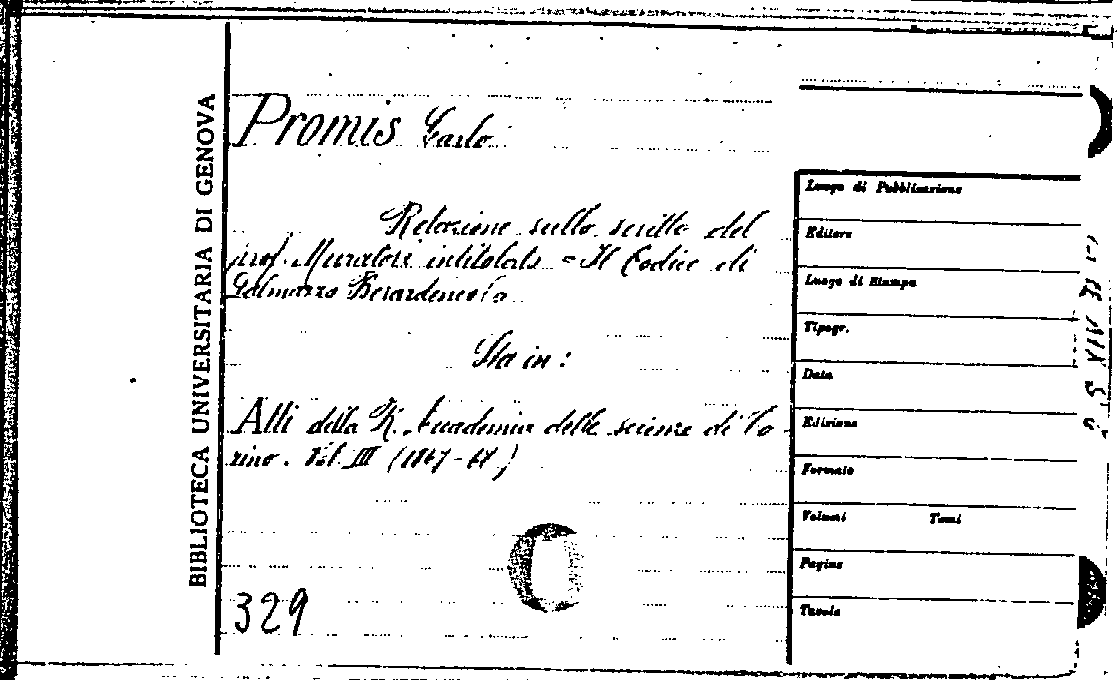 BIBLIOTECA UNIVERSITARIA DI GENOVA
Promis Carlo
Relazione sullo scritto del
prof. Muratori intitolato = Il Codice di
Sta in:
Atti della R. Accademia delle scienze di To
rino. Vol. III (1867-68)
329
Luogo di Pubblicazione
Editore
Luogo di Stampa
Tipogr.
Data
Edizione
Formato
Volumi Tomi
Pagine
Tavole